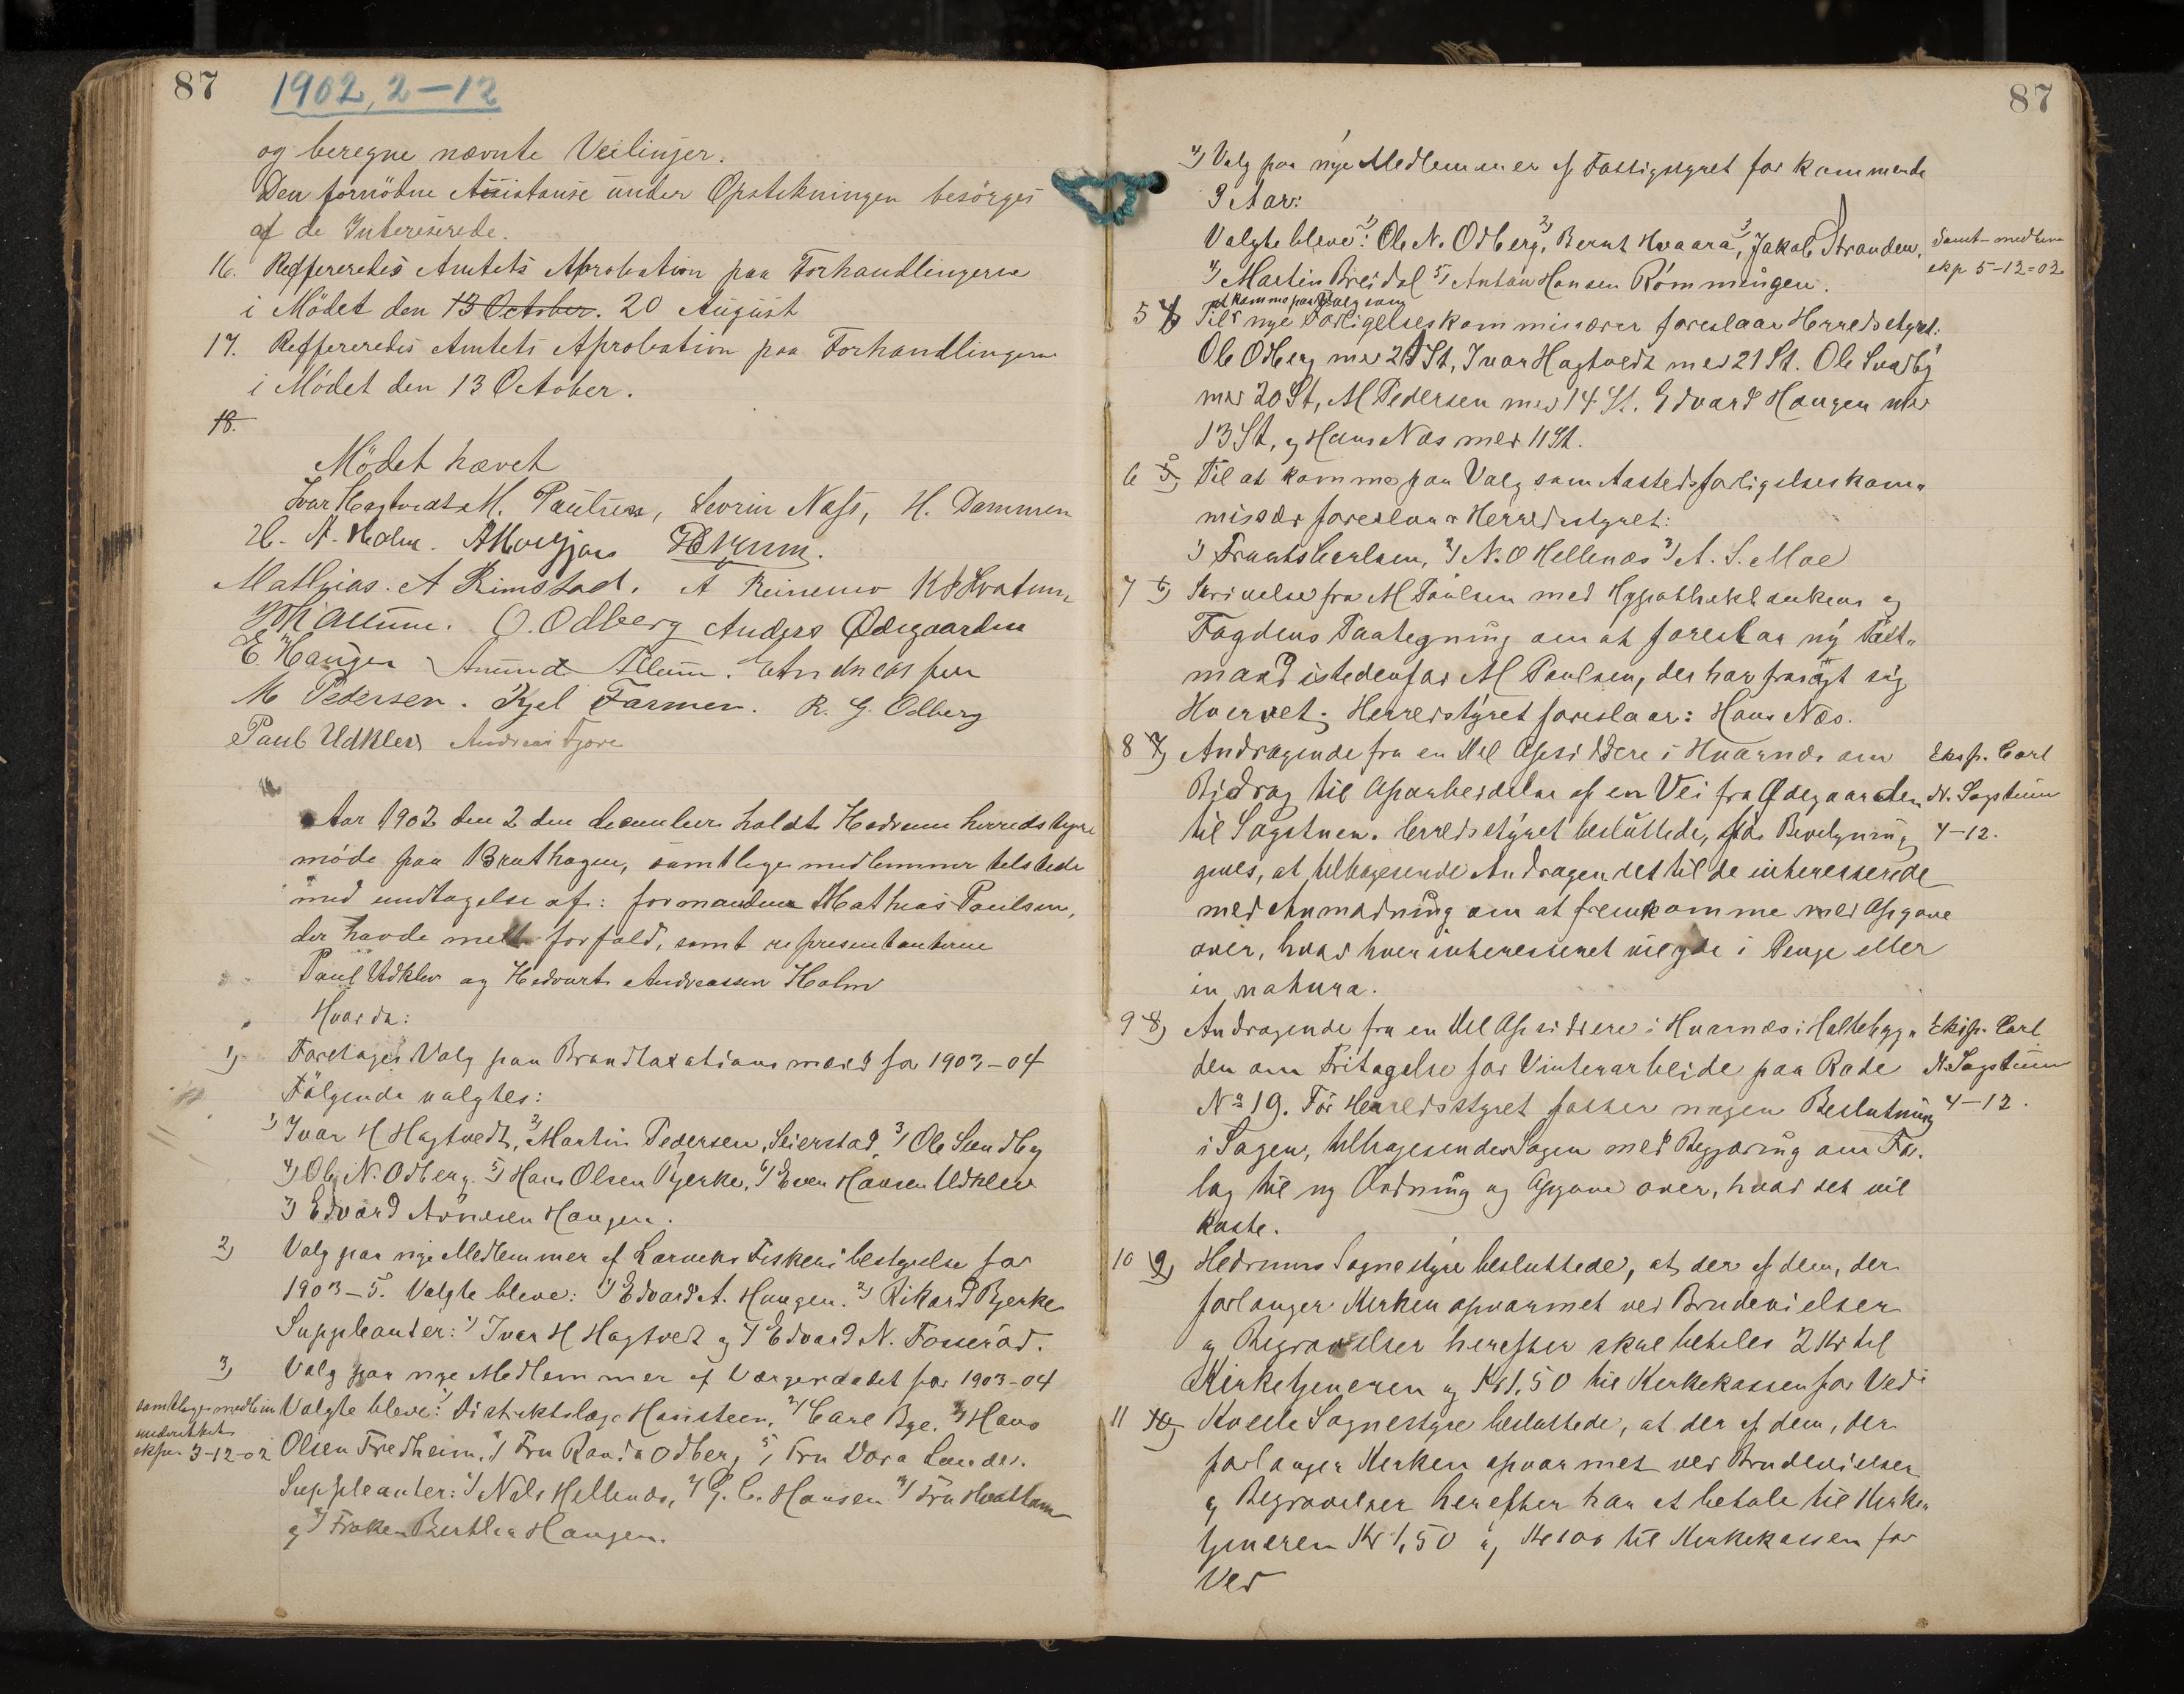 87
1902, 2-12
og beregne nævnte Veilinjer.
Den fornödne Assistanse under Opstikningen besörges
af de Interesserede.
16. Reffereredes Amtets Aprobation paa Forhandlingerne
i Mödet den 13 October. 20 August
17. Reffereredes Amtets Aprobation paa Forhandlingerne
i Mödet den 13 October.
18.
Mödet hævet
Ivar Hagtvedt M. Paulsen, Sevrin Næss, H. Dammen
H. A. Holm.
Mathias. A Rimstad. A
O. Odberg Anders Ødegaarden
E. Haugen Amund Allum.
M Pedersen. Kjel Farmen. R. G. Odberg
Paul Udklev Andreas Gjone
Aar 1902 den 2 den december holdt Hedrum herredstyre
möde paa Brathagen, samtlige medlemmer tilstede
med undtagelse af: formanden Mathias Paulsen,
der havde meldt forfald, samt representanterne
Paul Udklev og Hedvart Andreassen Holm
Hvorda:
1) Foretages Valg paa Brandtaxationsmænd for 1903-04
Fölgende valgtes:
1) Ivar H Hagtvedt, 2) Martin Pedersen Seierstad, 3) Ole Sundby
4) Ole N. Odberg. 5) Hans Olsen Bjerke, 6) Even Hansen Udklev
7) Edvard Arnesen Haugen.
2) Valg paa nye Medlemmer af Larviks Fiskeribestyrelse for
1903-5. Valgte bleve: 1) Edvard A. Haugen. 2) Rikard Bjerke
Suppleanter: 1) Ivar H Hagtvedt og 2) Edvard N. Fosserød.
3) Valg paa nye Medlemmer af Værgeraadet for 1903-04
samtlige medlem
underrettet
eksp. 3-12-02
Valgte bleve: 1) Distriktslæge Hansteen, 2) Carl Bye. 3) Hans
Olsen Fredheim. 4) Fru Randa Odberg 5) Fru Dora Lunde.
Suppleanter: 1) Nils Hellenæs, 2) G. C. Hansen 3) Fru Hvattum
og 4) Frøken Berthea Haugen.
87
4) Valg paa nye Medlemmer af Fattigstyret for kommende
3 Aar:
Valgte bleve: 1) Ole N. Odberg, 2) Bernt Hvaara, 3) Jakob Stranden,
4) Martin Breidal 5) Anton Hansen Römmingen.
Samt-medlem
exp 5-12-02
at komme paa Valg som
5 4) Til nye Forligelseskommissærer foreslaar Herredstyret:
Ole Odberg med 21 St, Ivar Hagtvedt med 21 St. Ole Sundby
med 20 St, M Pedersen med 14 St. Edvard Haugen med
13 St, og Hans Næs med 11 St.
6 5) Til at komme paa Valg som Aastedsforligelseskom-
missær foreslaar Herredstyret:
1) Frants Carlsen, 2) N. O Hellenæs 3) A. S. Moe
7 6) Skrivelse fra M Paulsen med Hypothekbankens og
Fogdens Paategning om at foreslaa ny Taxt-
mand istedenfor M Paulsen, der har frasagt sig
Hvervet. Herredstyret foreslaar: Hans Næs.
8 7) Andragende fra en Del Opsiddere i Hvarnes om
Bidrag til Oparbeidelse af en Vei fra Ødegaarden
til Sagstuen. Herredstyret besluttede, för Bevilgning
gives, at tilbagesende Andragendet til de interesserede
med Anmodning om at fremkomme med Opgave
over, hvad hver interesseret vil yde i Penge eller
in natura.
Eksp. Carl
N. Sagstuen
4-12.
9 8) Andragende fra en Del Opsiddere i Hvarnes i Haltebyg-
den om Fritagelse for Vinterarbeide paa Rode
No 19. Før Herredsstyret fatter nogen Beslutning
i Sagen, tilbagesendes Sagen med Begjæring om For-
lag til ny Ordning og Opgave over, hvad det vil
koste.
Eksp. Carl
N. Sagstuen
4-12.
10 9) Hedrums Sognestyre besluttede, at der af dem, der
forlanger Kirken opvarmet ved Brudevielser
og Begravelser herefter skal betales 2 Kr til
Kirketjeneren og Kr 1,50 til Kirkekassen for Ved
11 10) Kvelle Sognestyre besluttede, at der af dem, der
forlanger Kirken opvarmet ved Brudevielser
og Begravelser herefter har at betale til Kirke-
tjeneren Kr 1,50 og Kr 1 00 til Kirkekassen for
Ved